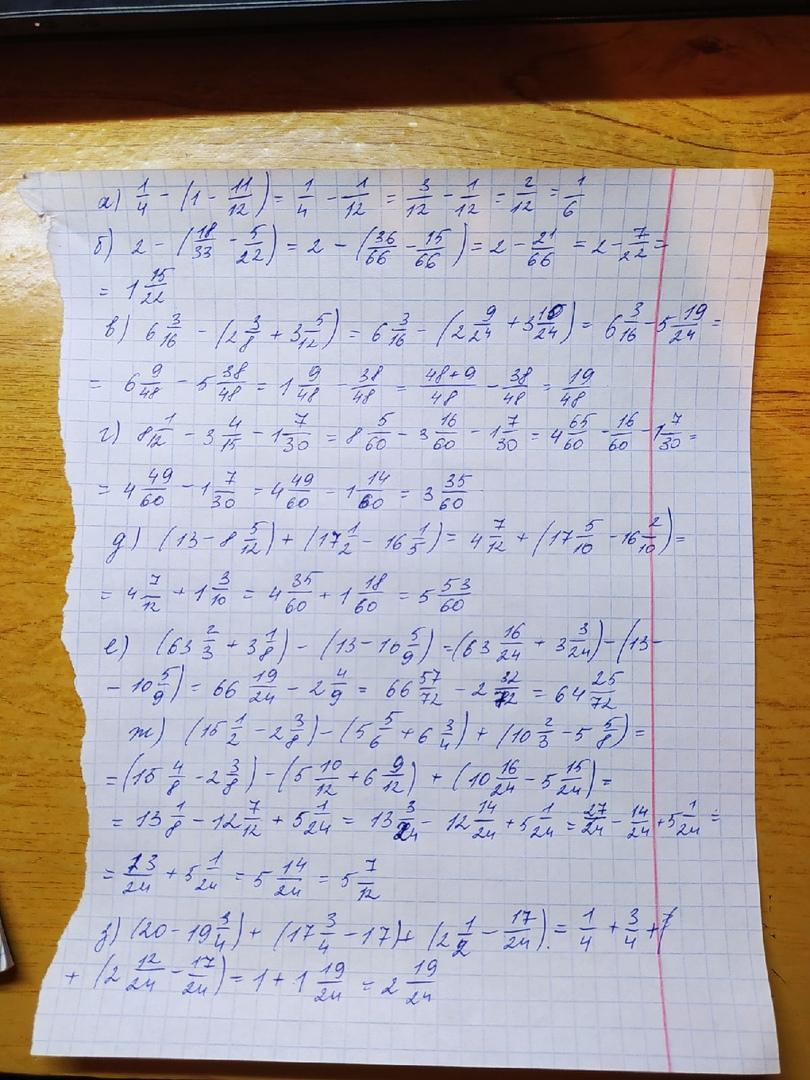 а) 1/4 - (1 - 11/12) = 1/4 - 1/12 = 3/12 - 1/12 = 2/12 = 1/6
б) 2 - (18/33 - 5/22) = 2 - (36/66 - 15/66) = 2 - 21/66 = 2 - 7/22 =
= 1 15/22
в) 6 3/16 - (2 3/8 + 3 5/12) = 6 3/16 - (2 9/24 + 3 10/24) = 6 3/16 - 5 19/24 =
= 6 9/48 - 5 38/48 = 1 9/48 - 38/48 = 48+9/48 - 38/48 = 19/48
г) 8 1/12 - 3 4/15 - 1 7/30 = 8 5/60 - 3 16/60 - 1 7/30 = 4 65/60 - 16/60 - 1 7/30 =
= 4 49/60 - 1 7/30 = 4 49/60 - 1 14/60 = 3 35/60
д) (13 - 8 5/12) + (17 1/2 - 16 1/5) = 4 7/12 + (17 5/10 - 16 2/10) =
= 4 7/12 + 1 3/10 = 4 35/60 + 1 18/60 = 5 53/60
е) (63 2/3 + 3 1/8) - (13 - 10 5/9) = (63 16/24 + 3 3/24) - (13 -
- 10 5/9) = 66 19/24 - 2 4/9 = 66 57/72 - 2 32/72 = 64 25/72
ж) (15 1/2 - 2 3/8) - (5 5/6 + 6 3/4) + (10 2/3 - 5 5/8) =
= (15 4/8 - 2 3/8) - (5 10/12 + 6 9/12) + (10 16/24 - 5 15/24) =
= 13 1/8 - 12 7/12 + 5 1/24 = 13 3/24 - 12 14/24 + 5 1/24 = 27/24 - 14/24 + 5 1/24 =
= 13/24 + 5 1/24 = 5 14/24 = 5 7/12
з) (20 - 19 3/4) + (17 3/4 - 17) + (2 1/2 - 17/24) = 1/4 + 3/4 +
+ (2 12/24 - 17/24) = 1 + 1 19/24 = 2 19/24